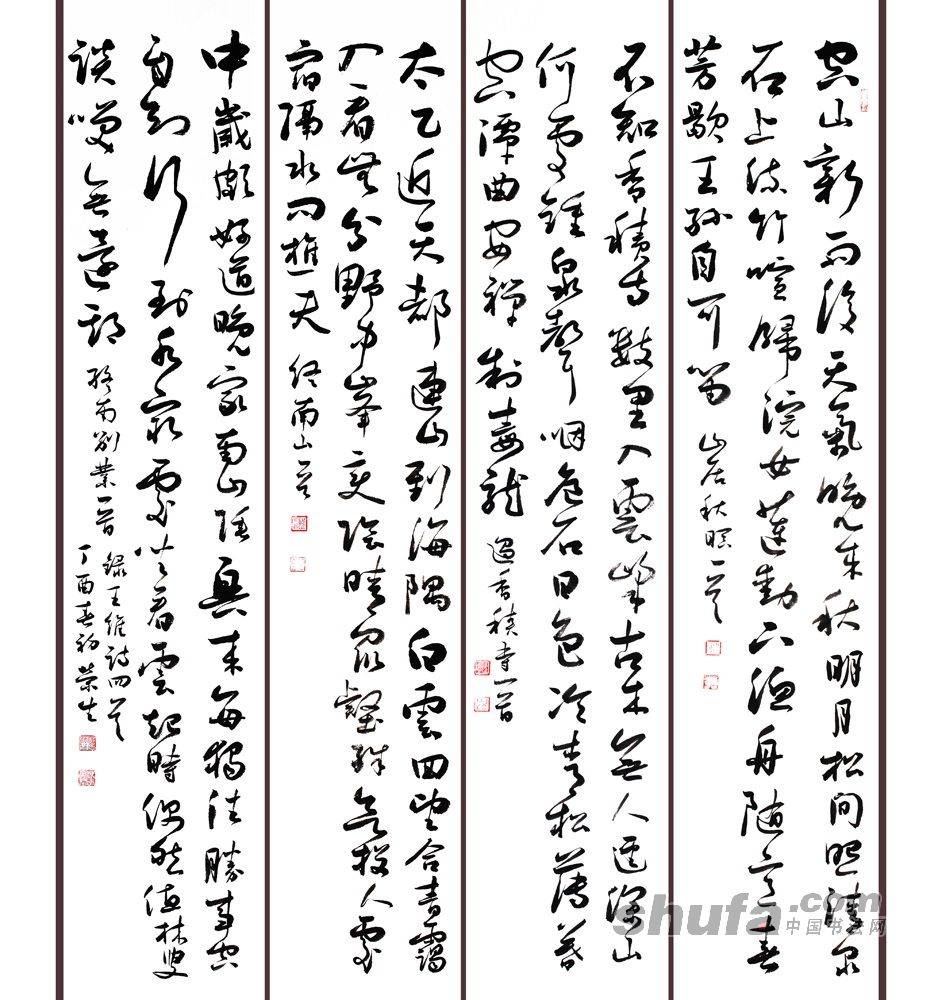 空山新雨後天氣晚來秋明月松間照清泉
石上流竹喧歸浣女蓮動下漁舟隨意春
芳歇王孫自可留 山居秋暝一首
不知香積寺數里入雲峰古木無人逕深山
何處鐘泉聲咽危石日色冷青松薄暮
空潭曲安禪制毒龍 過香積寺一首
太乙近天都連山到海隅白雲回望合青靄
入看無分野中峰變陰晴眾壑殊欲投人處
宿隔水問樵夫 終南山一首
中歲頗好道晚家南山陲興來每獨往勝事空
自知行到水窮處坐看雲起時偶然值林叟
談笑無還期 終南別業一首 錄王維詩四首
丁酉春初榮生
shufa.com
中国书法网